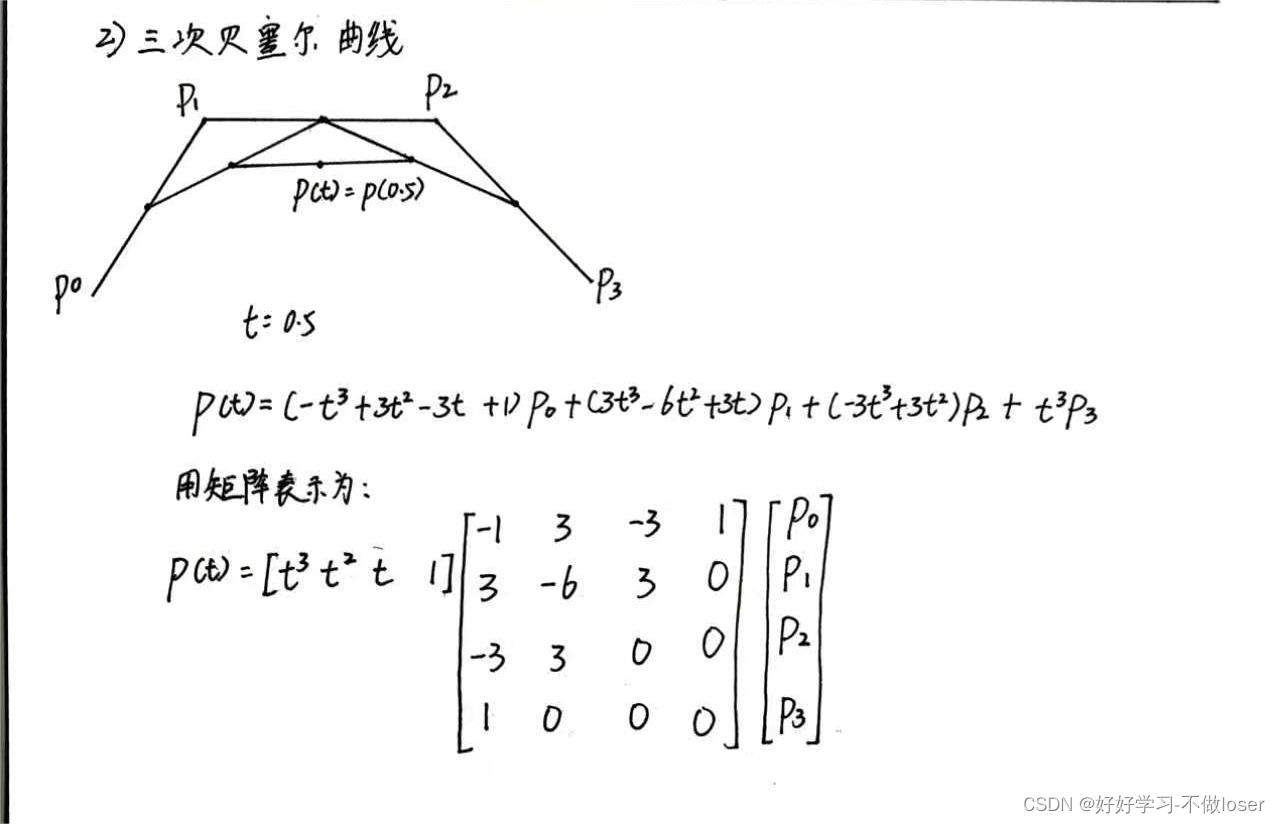 2) 三次贝塞尔曲线
P1 P2
P(t)=P(0.5)
P0 P3
t=0.5
P(t)=(-t³+3t²-3t+1)P0+(3t³-6t²+3t)P1+(-3t³+3t²)P2+t³P3
用矩阵表示为:
P(t)=[t³ t² t 1]
-1 3 -3 1 P0
3 -6 3 0 P1
-3 3 0 0 P2
1 0 0 0 P3
CSDN @好好学习-不做loser